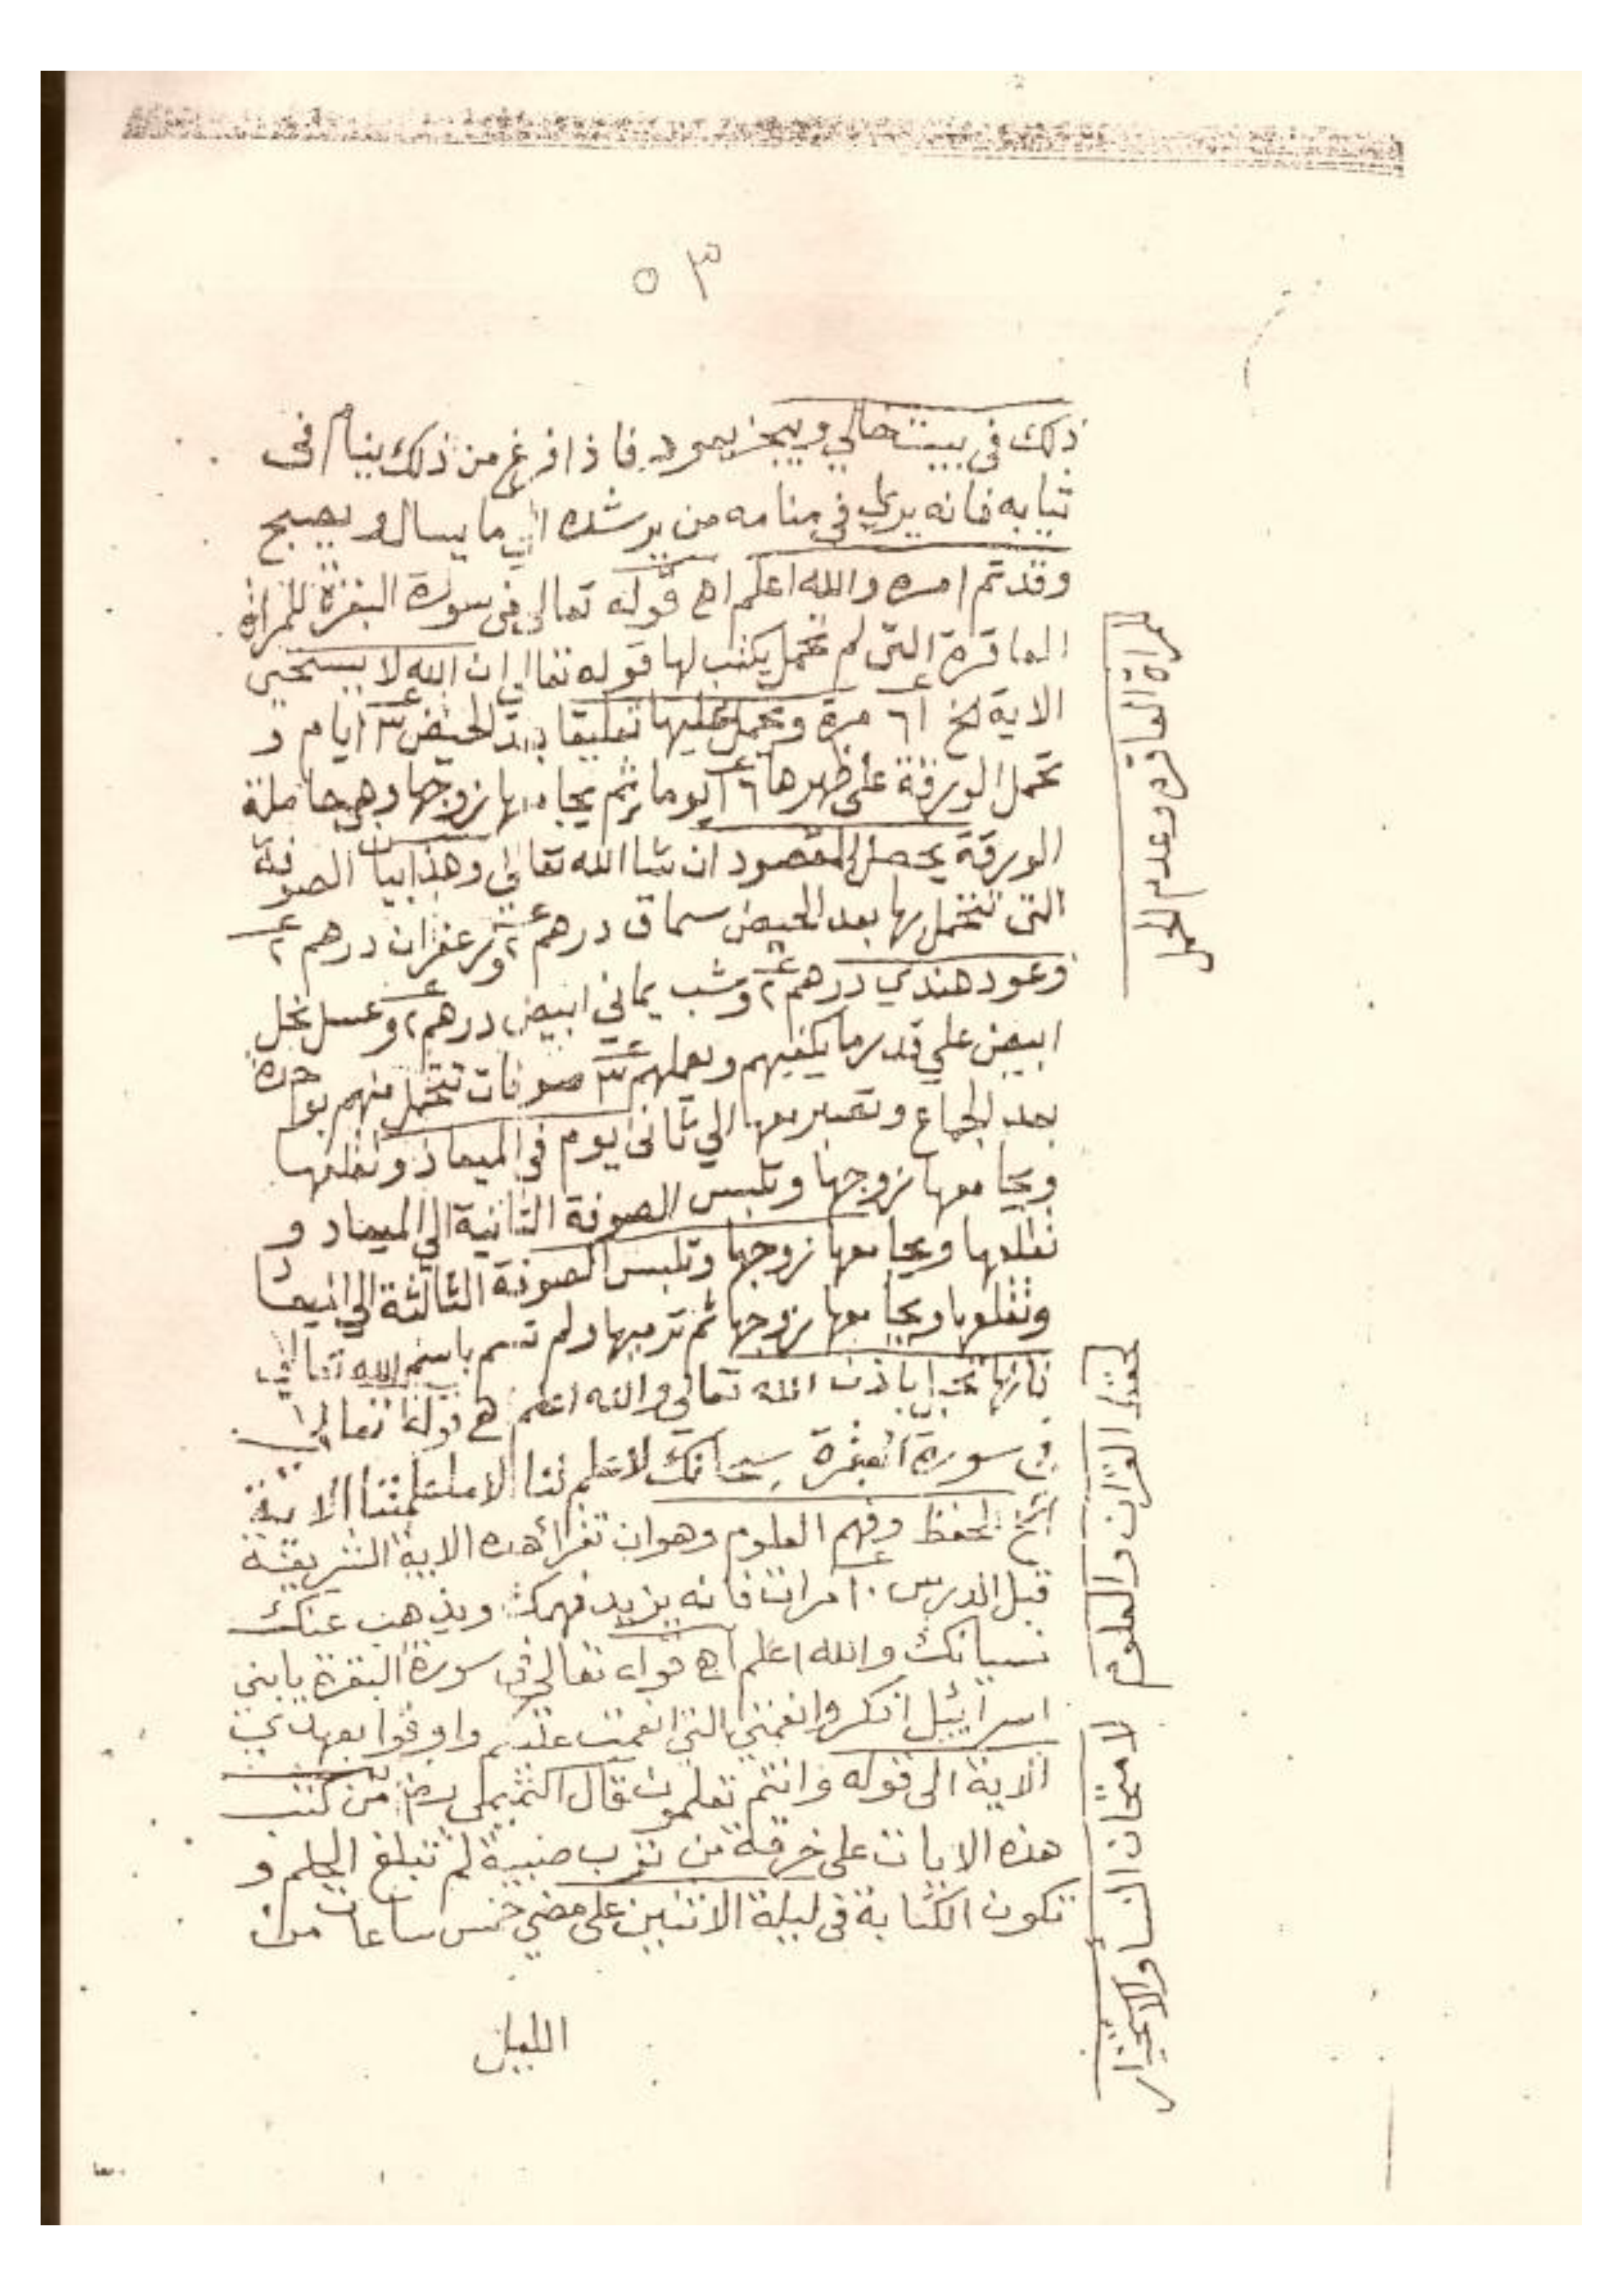 ٥٣
ذلك في بيت خالي ويبخر بعود فاذا فرغ من ذلك ينام في
ثيابه فانه يري في منامه من يرشده الي ما يسال ويصبح
وقد تم امره والله اعلم اه قوله تعالي في سورة البقرة للمراة
العاقرة التي لم تحمل يكتب لها قوله تعالي ان الله لا يستحيي
الاية الخ ٦١ مرة وتحمل عليها تعليقا بعد الحيض ٣ ايام و
تحمل الورقة على ظهرها ١٦ يوما ثم يجامعها زوجها وهي حاملة
الورقة يحصل المقصود ان شا الله تعالي وهذا بيان الصوفة
التي تتحمل بها بعد الحيض سماق درهم ٢ وزعفران درهم ٢
وعود هندي درهم ٢ وشب يماني ابيض درهم ٢ وعسل نحل
ابيض علي قدر ما يكفيهم وتعملهم ٣ صوفات تتحمل منهم بواحدة
بعد الجماع وتصبر معها الي ثاني يوم في الميعاد وتقلعها
ويجامعها زوجها وتلبس الصوفة الثانية الي الميعاد و
تقلعها ويجامعها زوجها وتلبس الصوفة الثالثة الي الميعاد
وتقلعها ويجامعها زوجها ثم ترميها ولم تسم باسم الله تعالي
فانها باذن الله تعالي والله اعلم اه قوله تعالي
في سورة البقرة سبحانك لا علم لنا الا ما علمتنا الاية
الخ لحفظ وفهم العلوم وهو ان تقرأ هذه الاية الشريفة
قبل الدرس ١٠ مرات فانه يزيد فهمك ويذهب عنك
نسيانك والله اعلم اه قوله تعالي في سورة البقرة يابني
اسرائيل اذكروا نعمتي التي انعمت عليكم واوفوا بعهدي
الاية الى قوله وانتم تعلمون قال التميمي من كتب
هذه الايات على خرقة من ثوب صبية لم تبلغ الحلم و
تكون الكتابة في ليلة الاثنين على مضي خمس ساعات من
الليل
للمراة العاقرة وعدم الحمل
لحفظ القران والعلوم
لامتحان النسا والاختبار